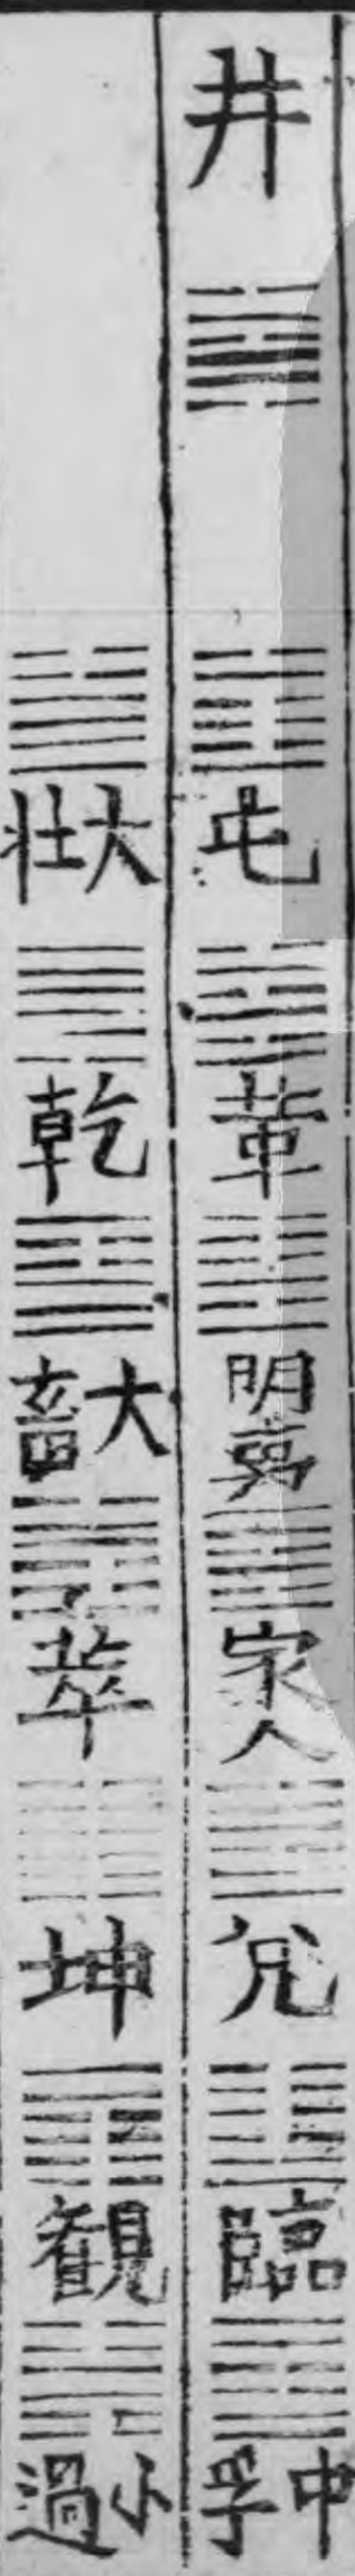 井 屯 革 明夷 家人 兊 臨 中孚
大壮 乾 大畜 萃 坤 観 小過